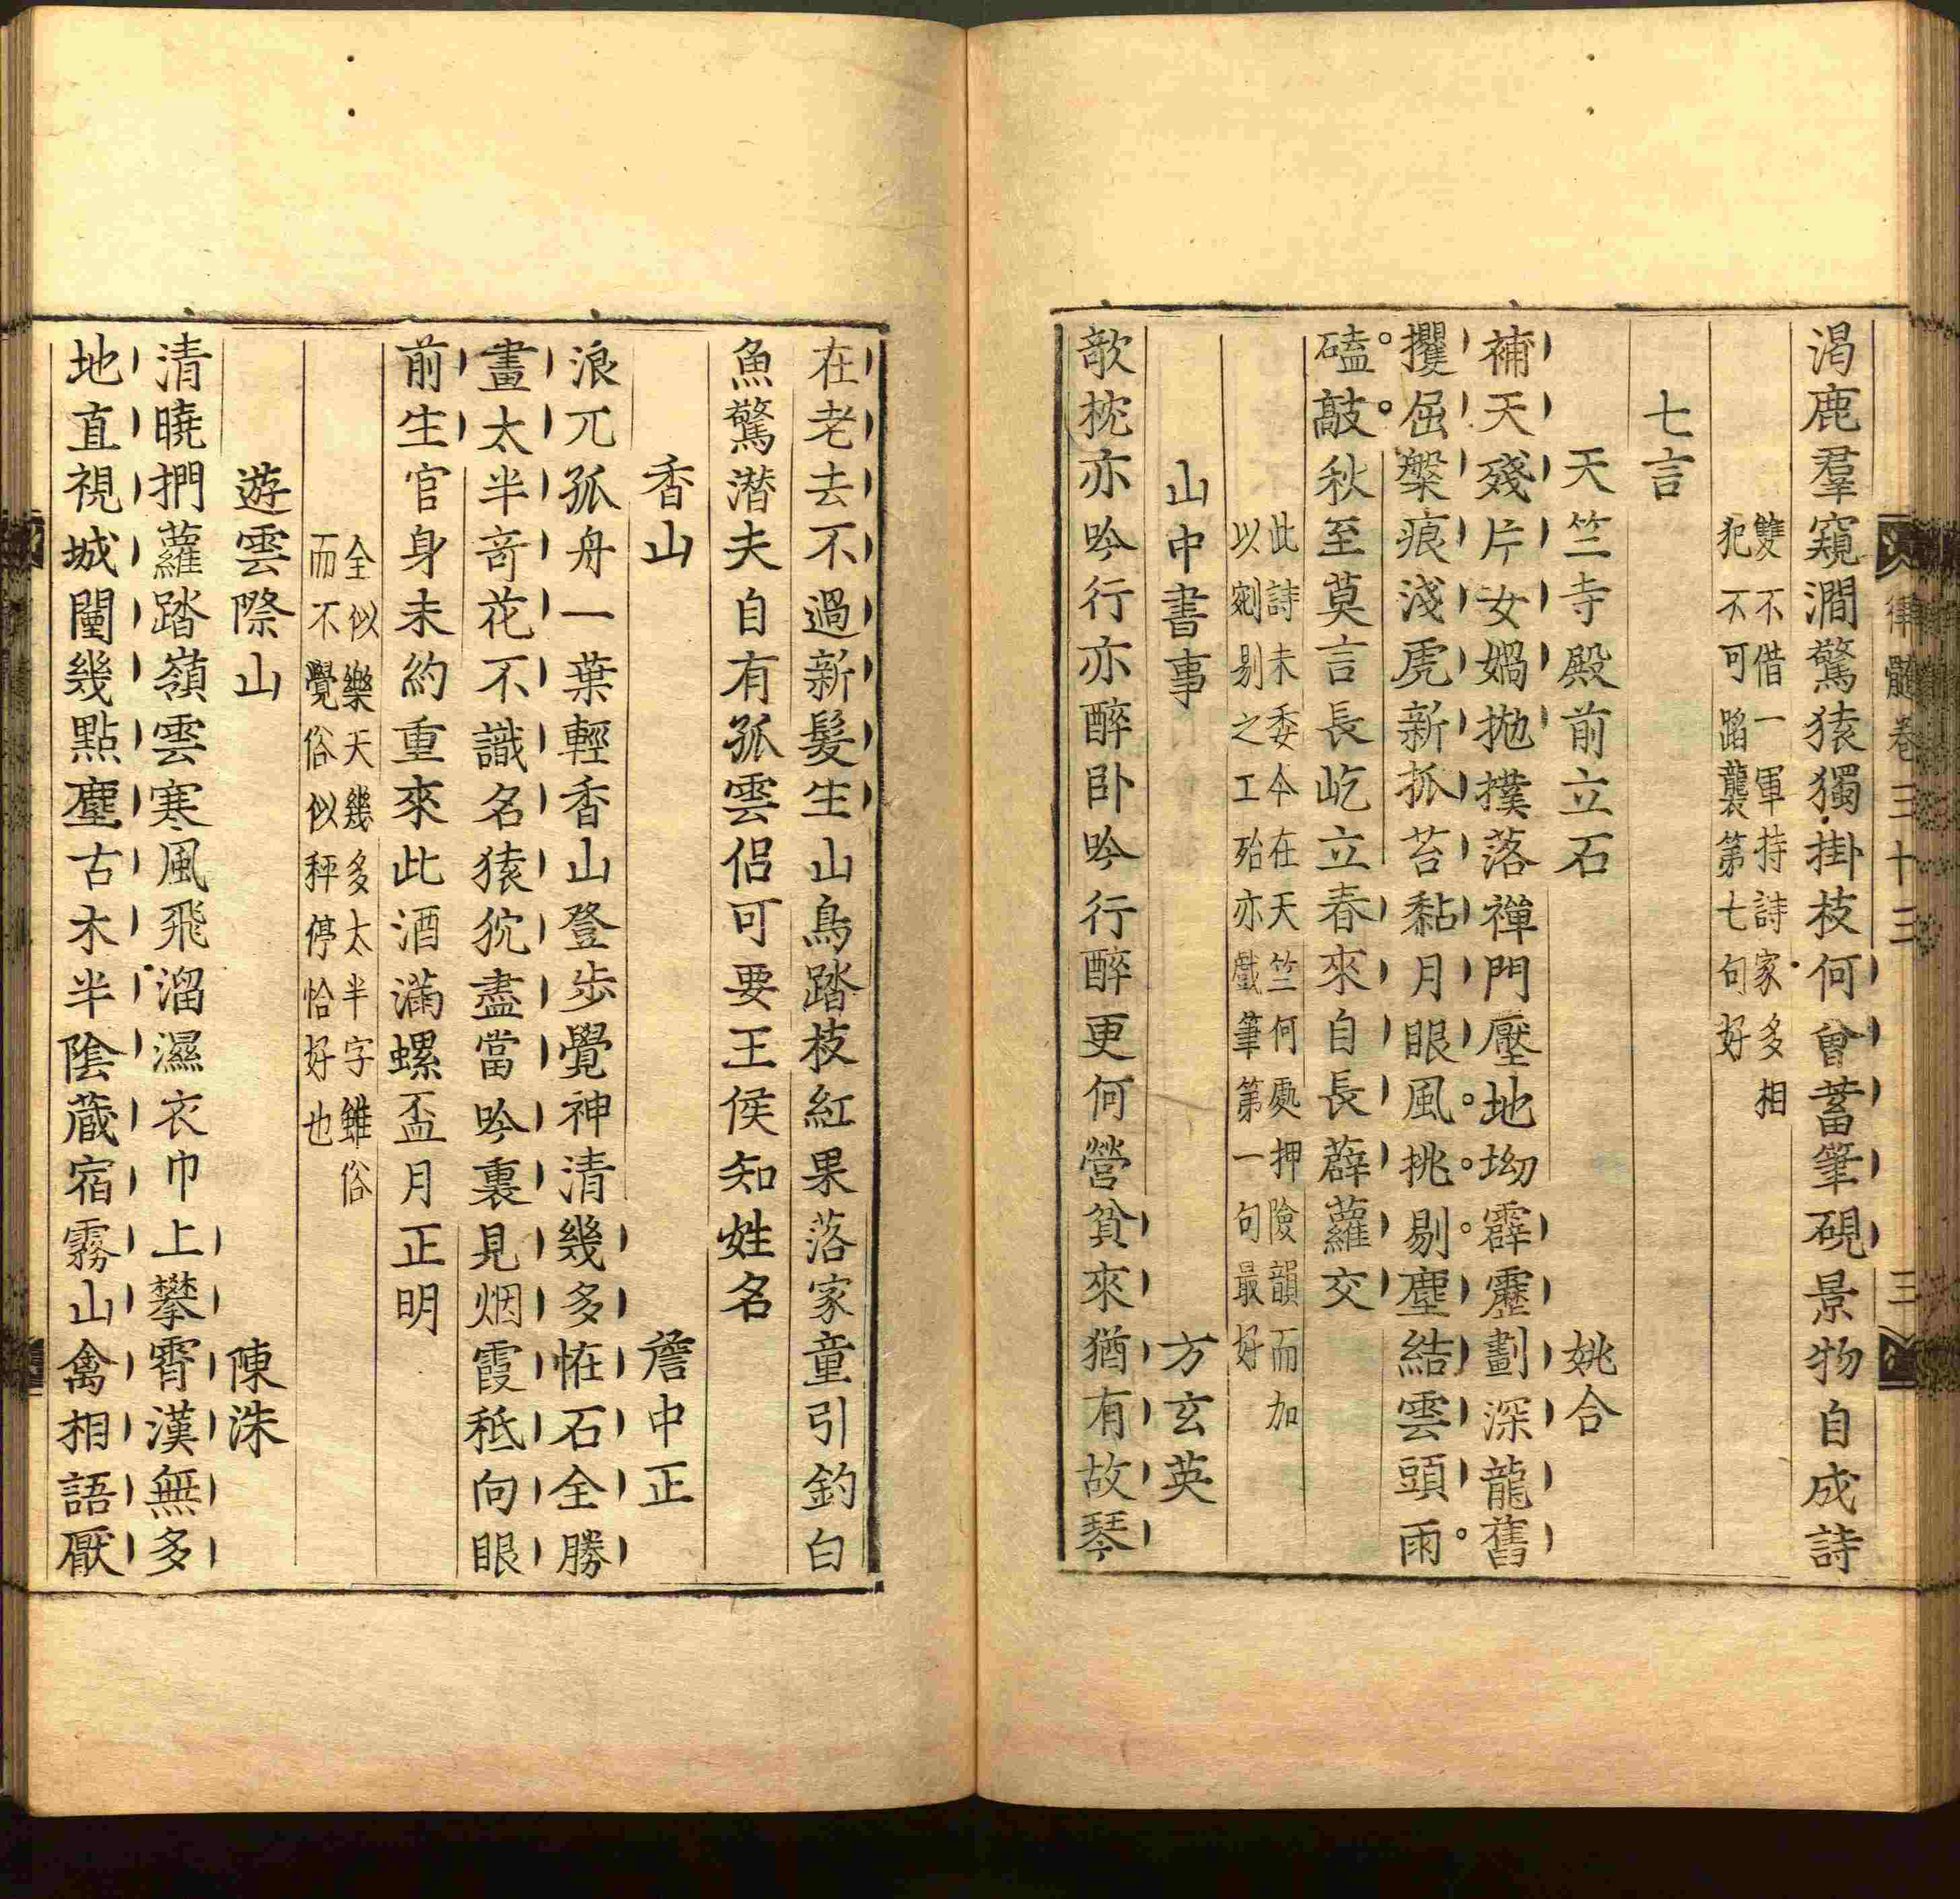 律髓卷三十三
三
渴鹿羣窺澗驚猿獨掛枝何曾蓄筆硯景物自成詩
雙不借一軍持詩家多相
犯不可蹈襲第七句好
七言
天竺寺殿前立石
姚合
補天殘片女媧抛撲落禪門壓地坳霹靂劃深龍舊
攫屈槃痕淺虎新抓苔黏月眼風挑剔塵結雲頭雨
磕敲秋至莫言長屹立春來自長薜蘿交
此詩未委今在天竺何處押險韻而加
以剜剔之工殆亦戲筆第一句最好
山中書事
方玄英
欹枕亦吟行亦醉卧吟行醉更何營貧來猶有故琴
在老去不過新髮生山鳥踏枝紅果落家童引釣白
魚驚潛夫自有孤雲侣可要王侯知姓名
香山
詹中正
浪兀孤舟一葉輕香山登步覺神清幾多恠石全勝
畫太半竒花不識名猿狖盡當吟裏見烟霞秪向眼
前生官身未約重來此酒滿螺盃月正明
全似樂天幾多太半字雖俗
而不覺俗似秤停恰好也
遊雲際山
陳洙
清曉捫蘿踏嶺雲寒風飛溜濕衣巾上攀霄漢無多
地直視城闉幾點塵古木半陰蔵宿霧山禽相語厭